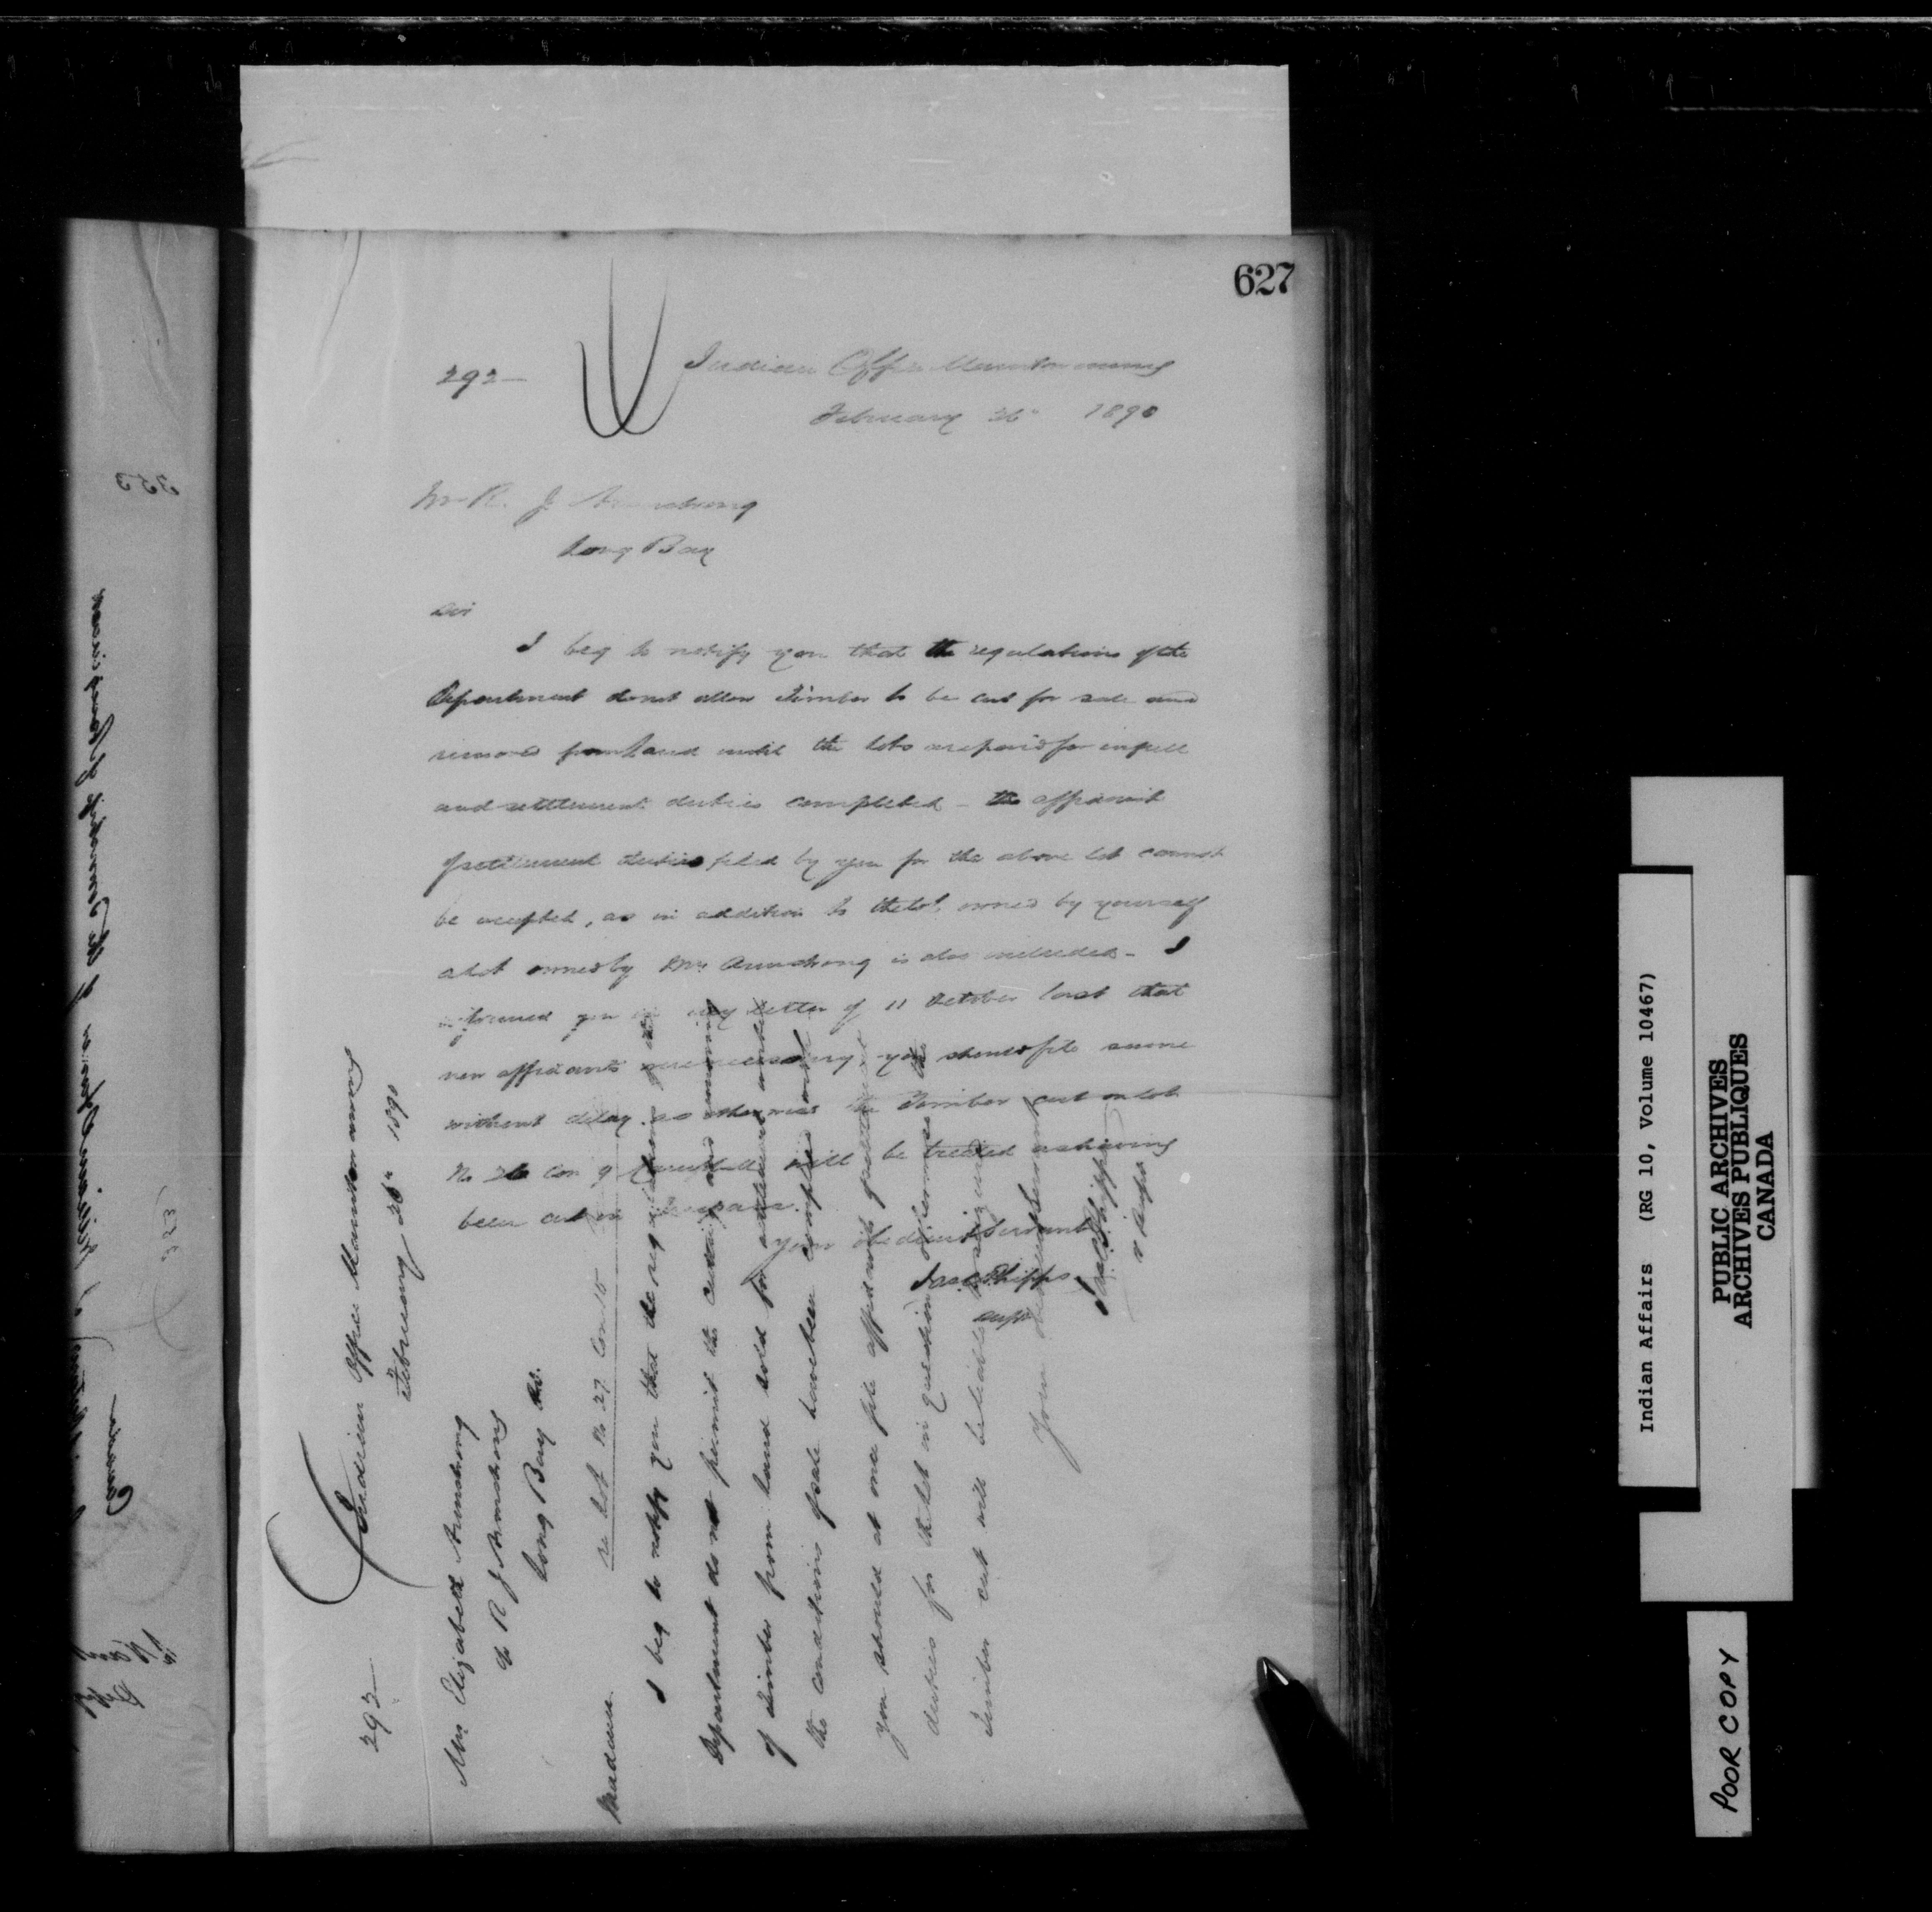 627
292 —
Indian Office Manitowaning
February 26th 1890
Mr R. J. Armstrong
Long Bay
Sir
I beg to notify you that the regulations of the
Department do not allow timber to be cut for sale and
removed from land until the lots are paid for in full
and settlement duties completed – the affidavit
of settlement duties filed by you for the above lot cannot
be accepted, as in addition to the lot owned by yourself
a lot owned by Mrs Armstrong is also included – I
informed you in my letter of 11 October last that
new affidavits were necessary you should file same
without delay as otherwise the timber cut on lot
No 26 con 9 Campbell will be treated as having
been cut in trespass.
Your obedient Servant
Jas C Phipps
Supt
292 —
Indian Office Manitowaning
February 26th 1890
Mrs Elizabeth Armstrong
c/o R J Armstrong
Long Bay
re Lot No 27 Con 15
Madam
I beg to notify you that the regulations of the
Department do not permit the cutting and removing
of timber from land sold for settlement until
the conditions of sale have been complied with
you should at once file affidavit of settlement
duties for the lot in question otherwise the
timber cut will be liable to seizure
Your obedient Servant
Jas C Phipps
V Supt
353
Indian Affairs (RG 10, Volume 10467)
PUBLIC ARCHIVES
ARCHIVES PUBLIQUES
CANADA
POOR COPY